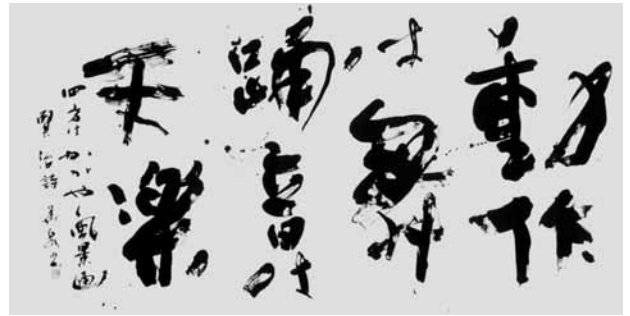 動作
は舞
踊音は
天楽
四方はかがやく風景画
賢治詩